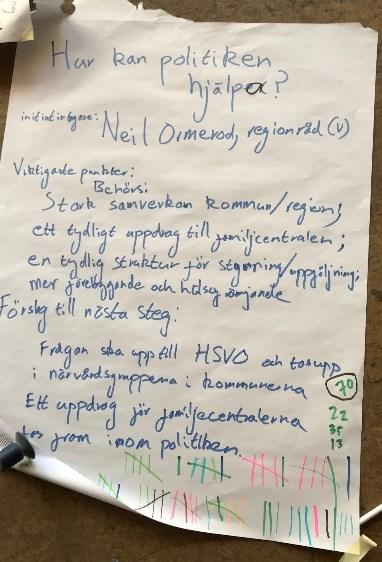 Hur kan politiken
hjälpa?
initiativtagare:
Neil Ormerod, regionråd (v)
Viktigaste punkter:
Behövs:
Stark samverkan kommun/region;
ett tydligt uppdrag till familjecentralen;
en tydlig struktur för styrning/uppföljning;
mer förebyggande och hälsofrämjande
Förslag till nästa steg:
Frågan ska upp till HSVO och tas upp
i närvårdsgrupperna i kommunerna
70
Ett uppdrag för familjecentralerna
22
35
13
tas fram inom politiken.